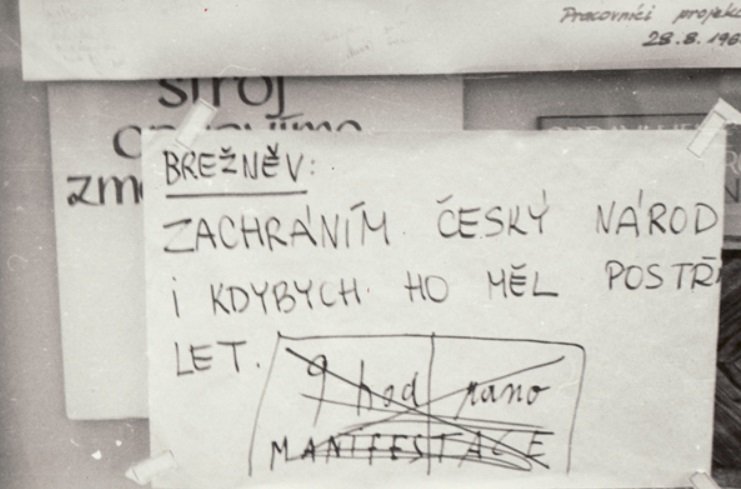 Pracovníci projek
28.8.196
stroj
BREŽNĚV:
ZACHRÁNÍM ČESKÝ NÁROD
i KDYBYCH HO MĚL POSTŘ
LET.
9 hod ráno
MANIFESTACE